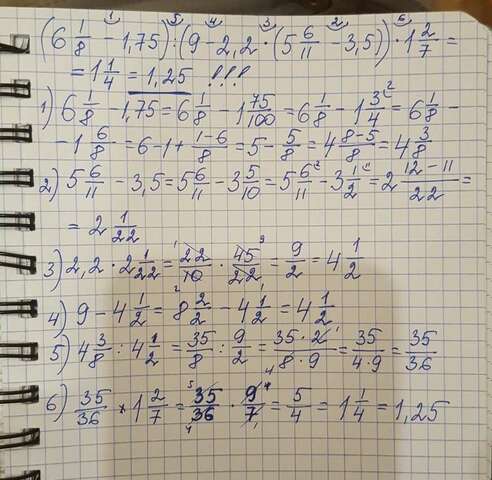 (6 1/8 - 1,75) : (9 - 2,2 · (5 6/11 - 3,5)) · 1 2/7 =
= 1 1/4 = 1,25 !!!
1) 6 1/8 - 1,75 = 6 1/8 - 1 75/100 = 6 1/8 - 1 3/4 = 6 1/8 -
- 1 6/8 = 6 - 1 + (1-6)/8 = 5 - 5/8 = 4 (8-5)/8 = 4 3/8
2) 5 6/11 - 3,5 = 5 6/11 - 3 5/10 = 5 6/11 - 3 1/2 = 2 (12 - 11)/22 =
= 2 1/22
3) 2,2 · 2 1/22 = 22/10 · 45/22 = 9/2 = 4 1/2
4) 9 - 4 1/2 = 8 2/2 - 4 1/2 = 4 1/2
5) 4 3/8 : 4 1/2 = 35/8 : 9/2 = (35 · 2)/(8 · 9) = 35/(4·9) = 35/36
6) 35/36 × 1 2/7 = 35/36 · 9/7 = 5/4 = 1 1/4 = 1,25